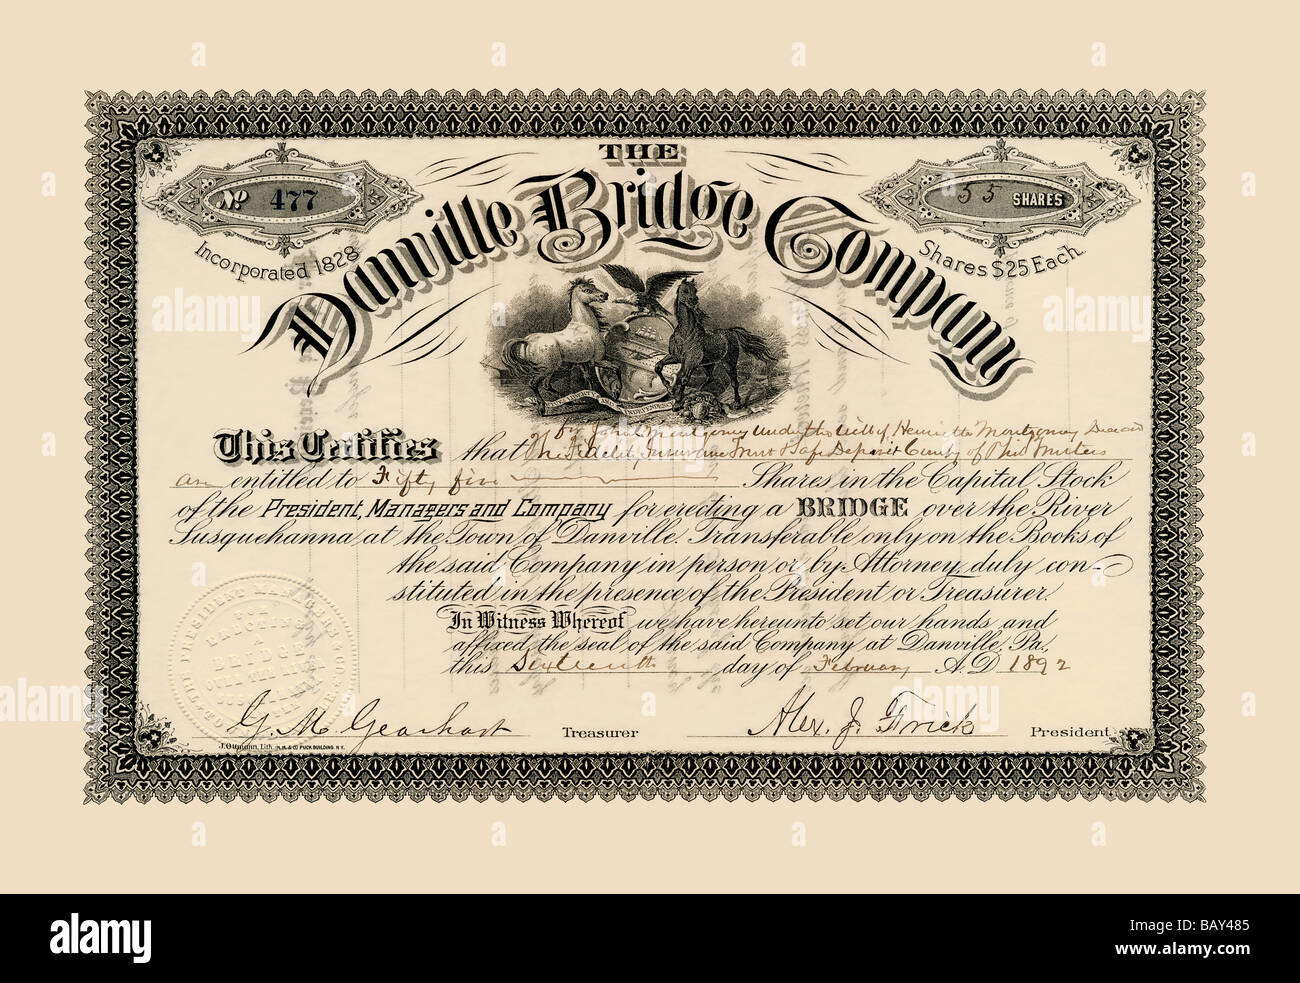 THE
Danville Bridge Company
No 477
55 SHARES
Incorporated 1828
Shares $25 Each.
for John Montgomery under the Will of Henrietta Montgomery Deceased
This Certifies that The Fidelity Insurance Trust & Safe Deposit Comp'y of Phil Trustees
are entitled to Fifty five Shares in the Capital Stock
of the President, Managers and Company for erecting a BRIDGE over the River
Susquehanna at the Town of Danville. Transferable only on the Books of
the said Company in person or by Attorney, duly con-
stituted in the presence of the President or Treasurer.
In Witness Whereof we have hereunto set our hands and
affixed the seal of the said Company at Danville, Pa.
this Sixteenth day of February A.D 1892
G. M. Gearhart Treasurer Alex. J. Frick President
J. Ottmann, Lith. PUCK BUILDING, N.Y.
THE PRESIDENT MANAGERS & CO
ERECTING
A
BRIDGE
OVER THE RIVER
alamy
Image ID: BAY485
www.alamy.com